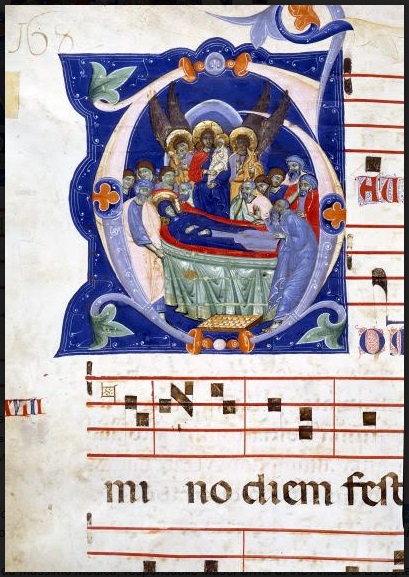 168
G
AU
O
XVIII
mi no diem fest